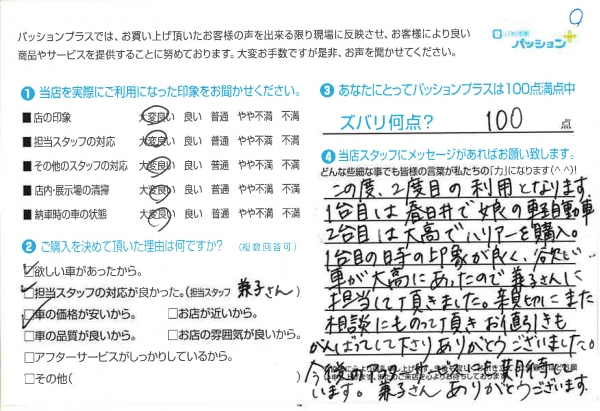 9
パッションプラスでは、お買い上げ頂いたお客様の声を出来る限り現場に反映させ、お客様により良い
商品やサービスを提供することに努めております。大変お手数ですが是非、お声を聞かせてください。
パッション
1 当店を実際にご利用になった印象をお聞かせください。
■店の印象 大変良い 良い 普通 やや不満 不満
■担当スタッフの対応 大変良い 良い 普通 やや不満 不満
■その他のスタッフの対応 大変良い 良い 普通 やや不満 不満
■店内・展示場の清掃 大変良い 良い 普通 やや不満 不満
■納車時の車の状態 大変良い 良い 普通 やや不満 不満
2 ご購入を決めて頂いた理由は何ですか? (複数回答可)
□欲しい車があったから。
□担当スタッフの対応が良かった。(担当スタッフ 兼子さん)
□車の価格が安いから。 □お店が近いから。
□車の品質が良いから。 □お店の雰囲気が良いから。
□アフターサービスがしっかりしているから。
□その他( )
3 あなたにとってパッションプラスは100点満点中
ズバリ何点? 100 点
4 当店スタッフにメッセージがあればお願い致します。
どんな些細な事でも皆様の言葉が私たちの「力」になります(^^)!
この度、2度目の利用となります。
1台目は春日井で娘の軽自動車
2台目は大高でハリアーを購入。
1台目の日時の印象が良く、欲しい
車が大高にあったので兼子さんに
担当して頂きました。親切にまた
相談にものって頂きお値引きも
がんばって下さりありがとうございました。
今後のアフターサービスにも期待して
います。兼子さん ありがとうございます。